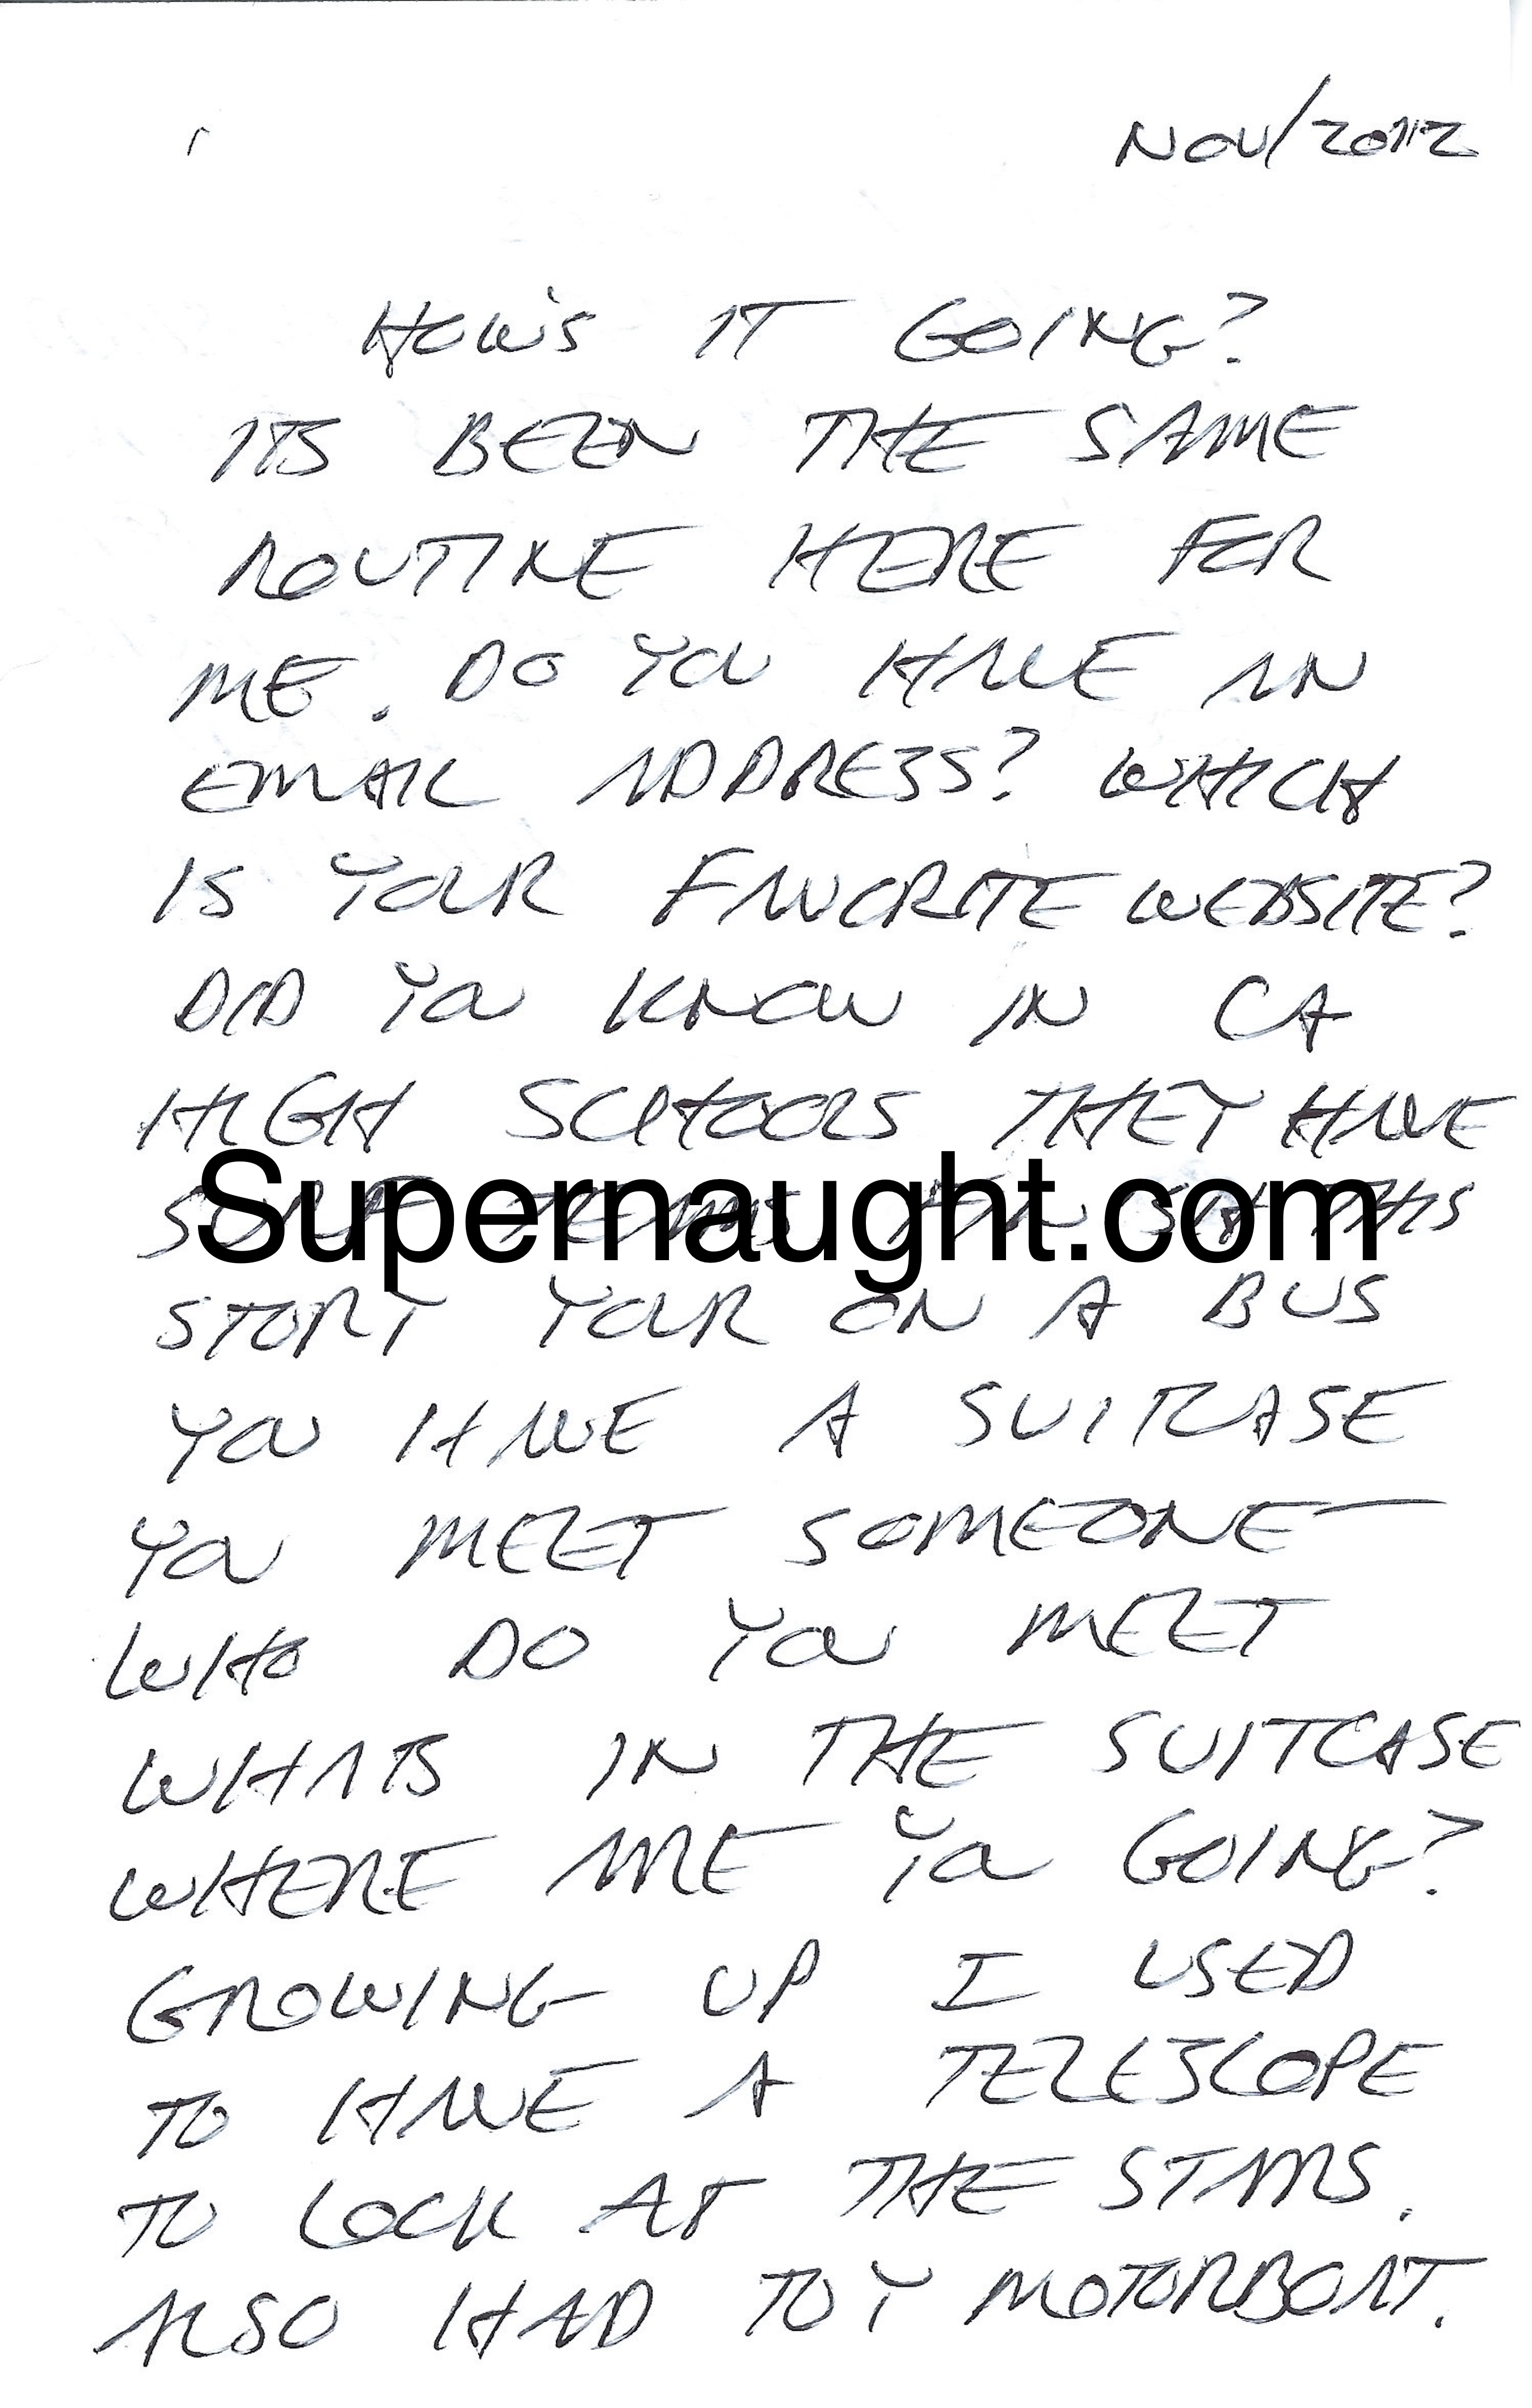 NOV/2012
HOW'S IT GOING?
ITS BEEN THE SAME
ROUTINE HERE FOR
ME. DO YOU HAVE AN
EMAIL ADDRESS? WHICH
IS YOUR FAVORITE WEBSITE?
DID YOU KNOW IN CA
HIGH SCHOOLS THEY HAVE
SURF TEAMS THIS
Supernaught.com
STORY YOUR ON A BUS
YOU HAVE A SUITCASE
YOU MEET SOMEONE
WHO DO YOU MEET
WHATS IN THE SUITCASE
WHERE ARE YOU GOING?
GROWING UP I USED
TO HAVE A TELESCOPE
TO LOOK AT THE STARS.
ALSO HAD TOY MOTORBOAT.